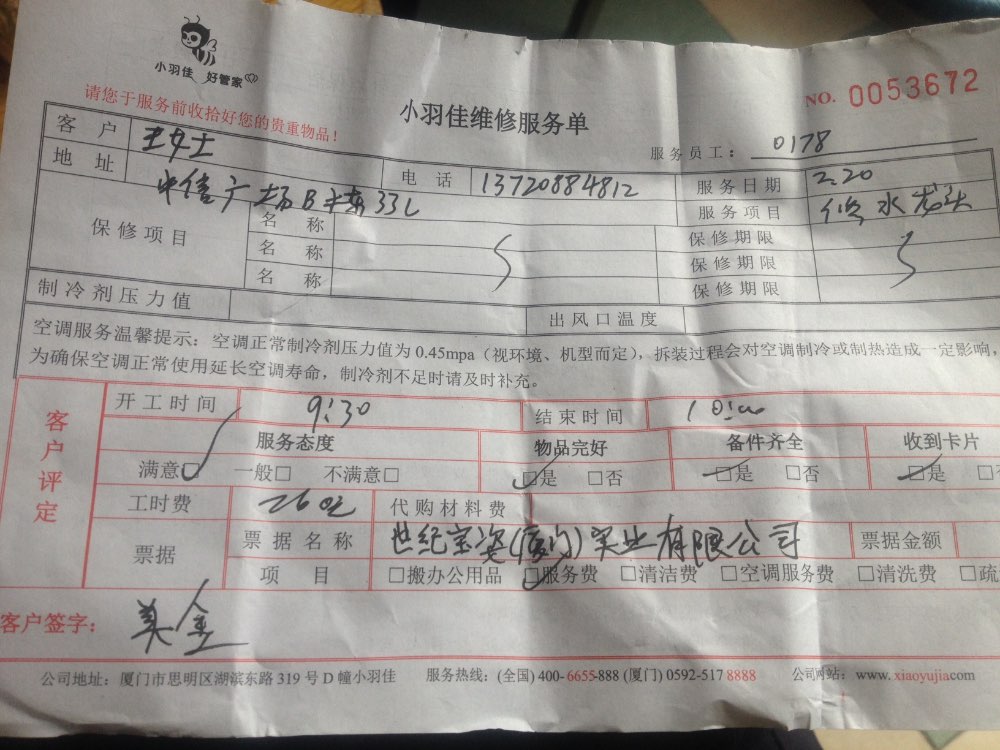 小羽佳 好管家
请您于服务前收拾好您的贵重物品！
小羽佳维修服务单
NO. 0053672
服务员工： 0178
客户 王女士
地址 中信广场B栋33L
电话 13720884812
服务日期 2.20
服务项目 修水龙头
保修项目
名称 保修期限
名称 保修期限
名称 保修期限
制冷剂压力值 出风口温度
空调服务温馨提示：空调正常制冷剂压力值为0.45mpa（视环境、机型而定），拆装过程会对空调制冷或制热造成一定影响，
为确保空调正常使用延长空调寿命，制冷剂不足时请及时补充。
客户评定
开工时间 9:30 结束时间 10:00
服务态度 物品完好 备件齐全 收到卡片
满意□ 一般□ 不满意□ □是 □否 □是 □否 □是
工时费 260元 代购材料费
票据 票据名称 世纪宝姿(厦门)实业有限公司 票据金额
项目 □搬办公用品 □服务费 □清洁费 □空调服务费 □清洗费 □疏
客户签字：
公司地址：厦门市思明区湖滨东路319号D幢小羽佳 服务热线：(全国) 400-6655-888 (厦门) 0592-517 8888 公司网站：www.xiaoyujia.com